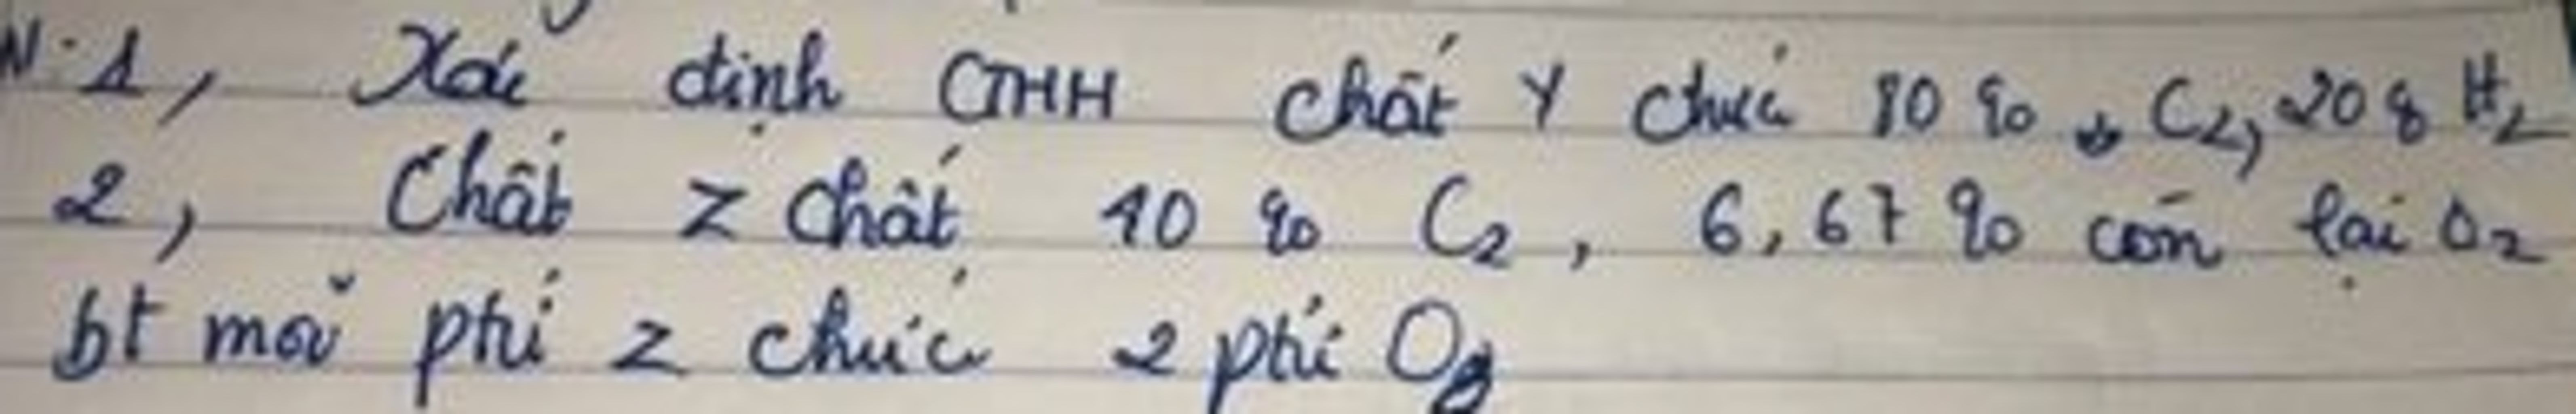 N.1, Xác định CTHH chất Y chứa 80 % C2, 20 % H2
2, Chất Z chất 40 % C2, 6,67 % còn lại O2
bt mỗi ptử Z chứa 2 ptử O2